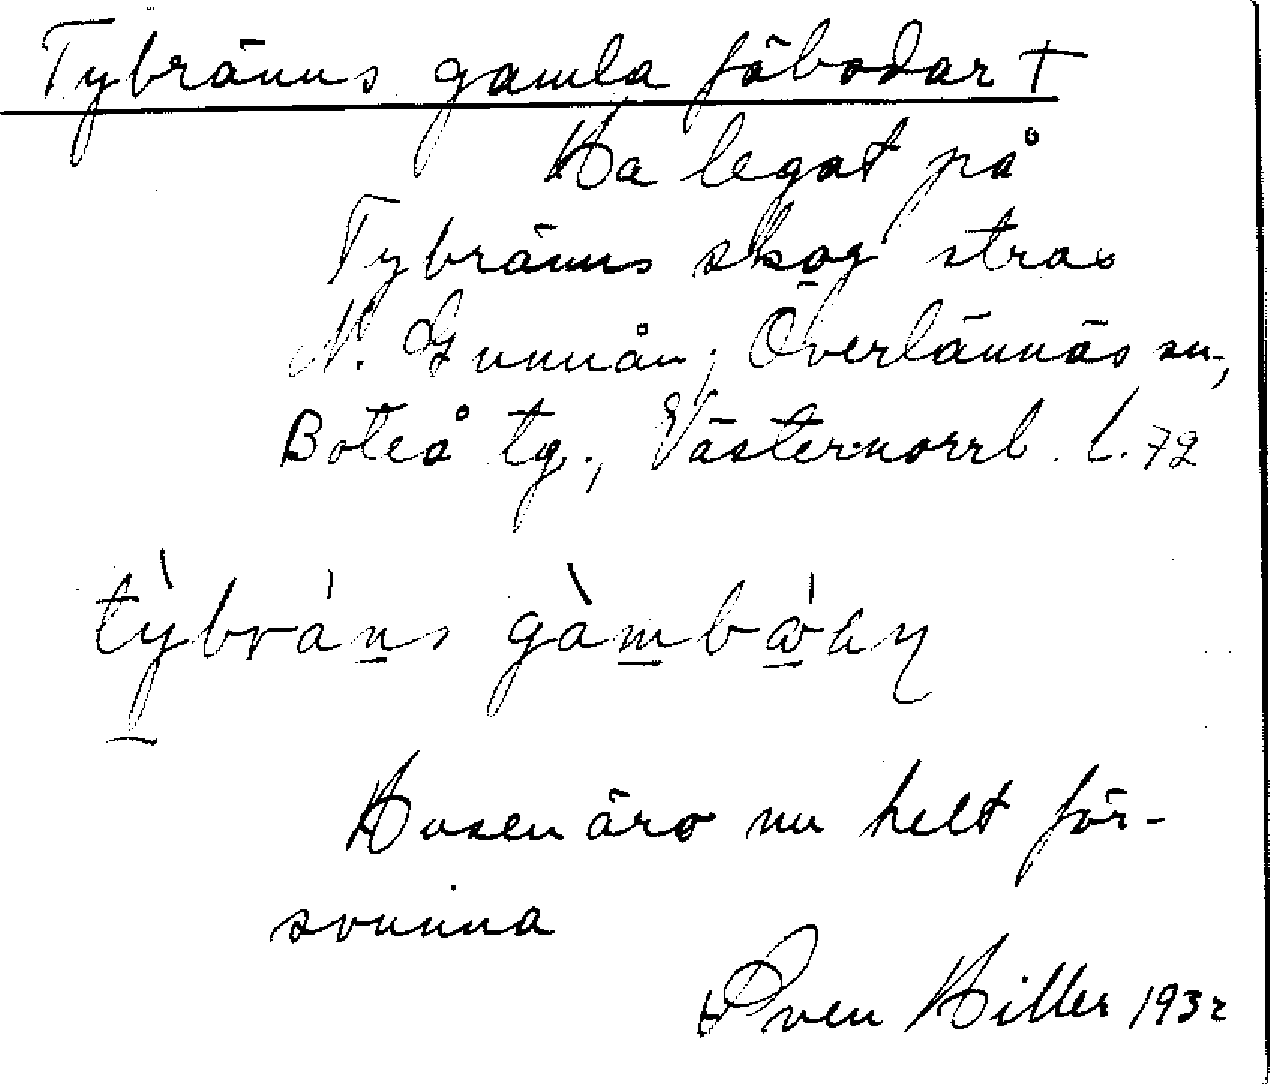 Tybränns gamla fäbodar †
Ha legat på
Tybränns skog strax
N. Gunnån, Överlännäs sn,
Boteå tg., Västernorrl. l. 72
Husen äro nu helt för-
svunna
Sven Hiller 1932